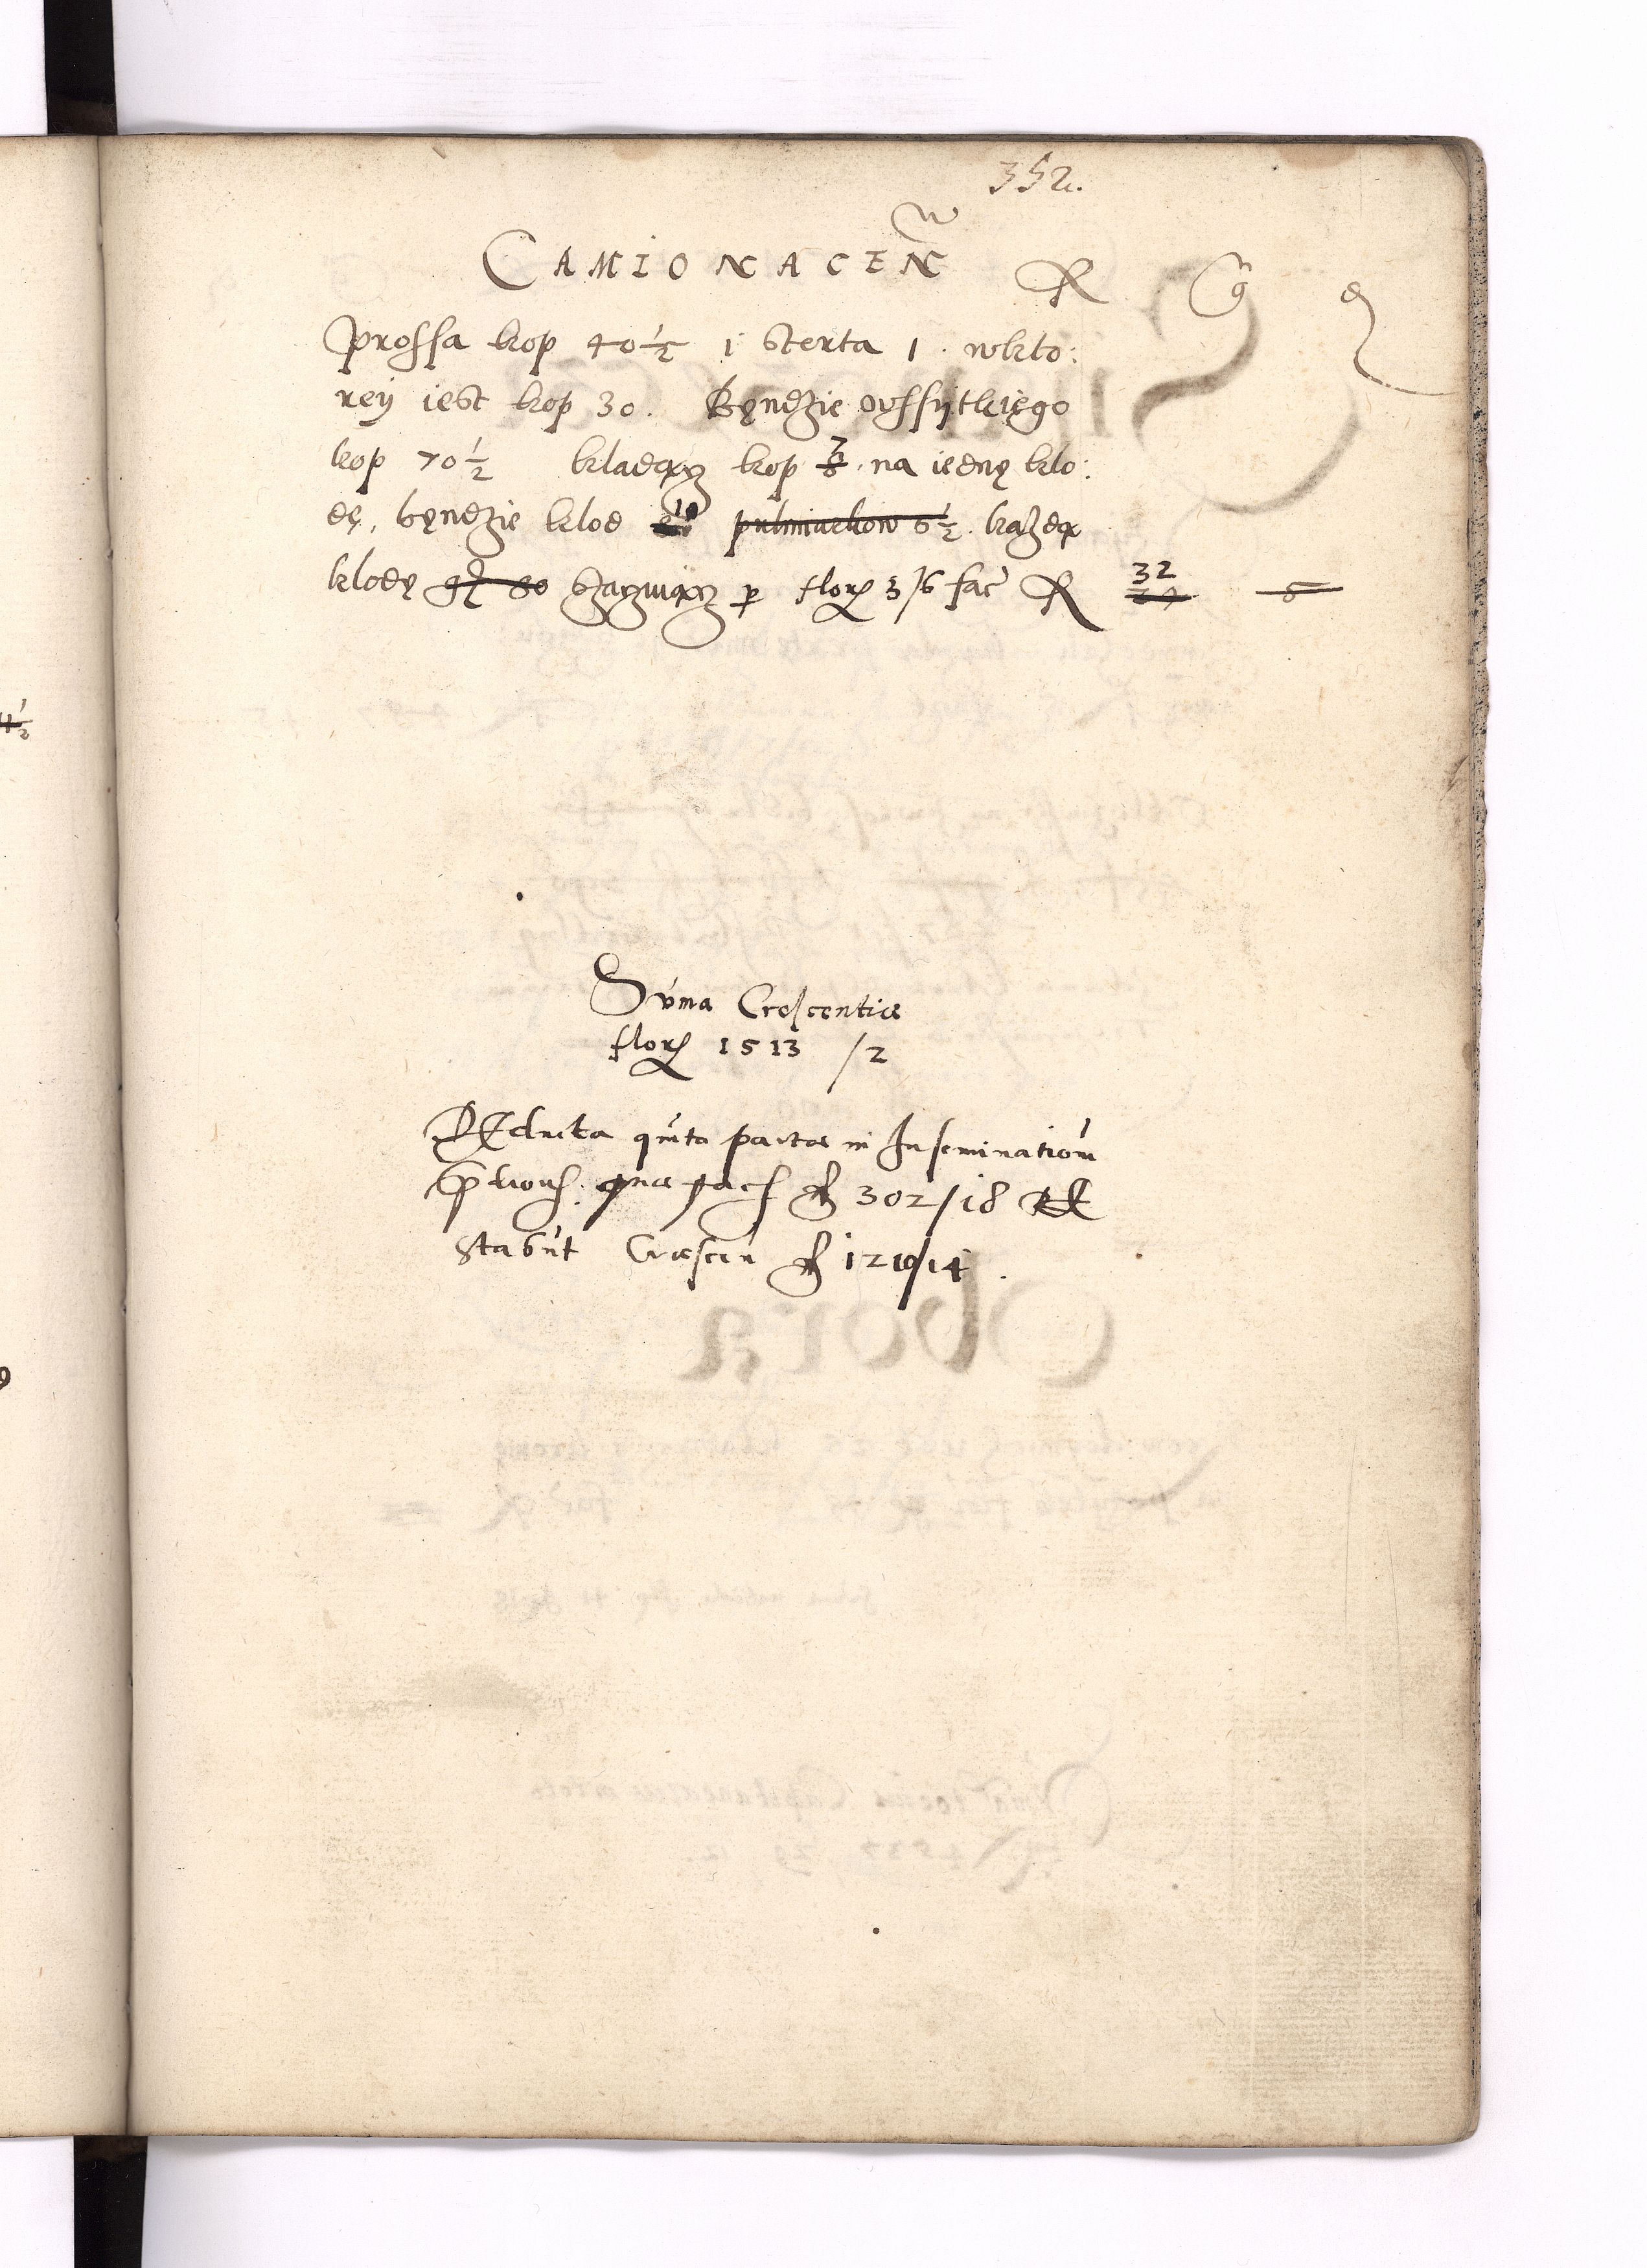 352.
CAMIONACEN̄ fl g d
Prossa kop 40 1/2 i sterta 1. wkto:
rey iest kop 30. Będzie wssytkiego
kop 70 1/2 kladącz kop 7 na iednę klo:
dę, będzie klod 10 pulmiarkow 6 1/2. kazdą
klodę 80 szaczuiącz p flor 3/6 fac fl 32
Suma Crescentiae
flor 1513 /2
Deducta quinta parte in Inseminationem
quae facit fl 302/18
stabunt Crescen fl 1210/14.